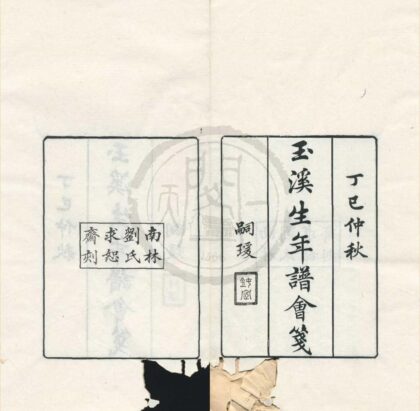 丁巳仲秋
玉溪生年譜會箋
嗣瑗
南林
劉氏
求恕
齋刻